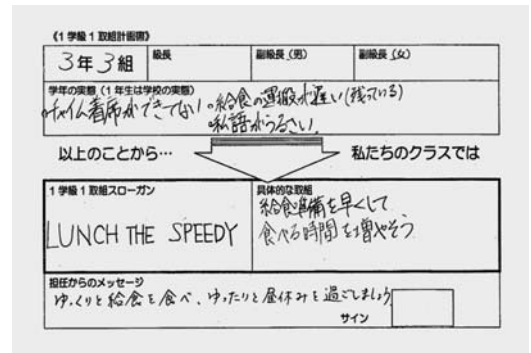 《1 学級 1 取組計画書》
3年3組 級長 副級長(男) 副級長(女)
学年の実態(1 年生は学校の実態)
・チャイム着席ができてない ・給食の運搬が遅い(残っている)
・私語がうるさい
以上のことから… 私たちのクラスでは
1 学級 1 取組スローガン
LUNCH THE SPEEDY
具体的な取組
給食準備を早くして
食べる時間を増やそう
担任からのメッセージ
ゆっくりと給食を食べ、ゆったりと昼休みを過ごしましょう
サイン